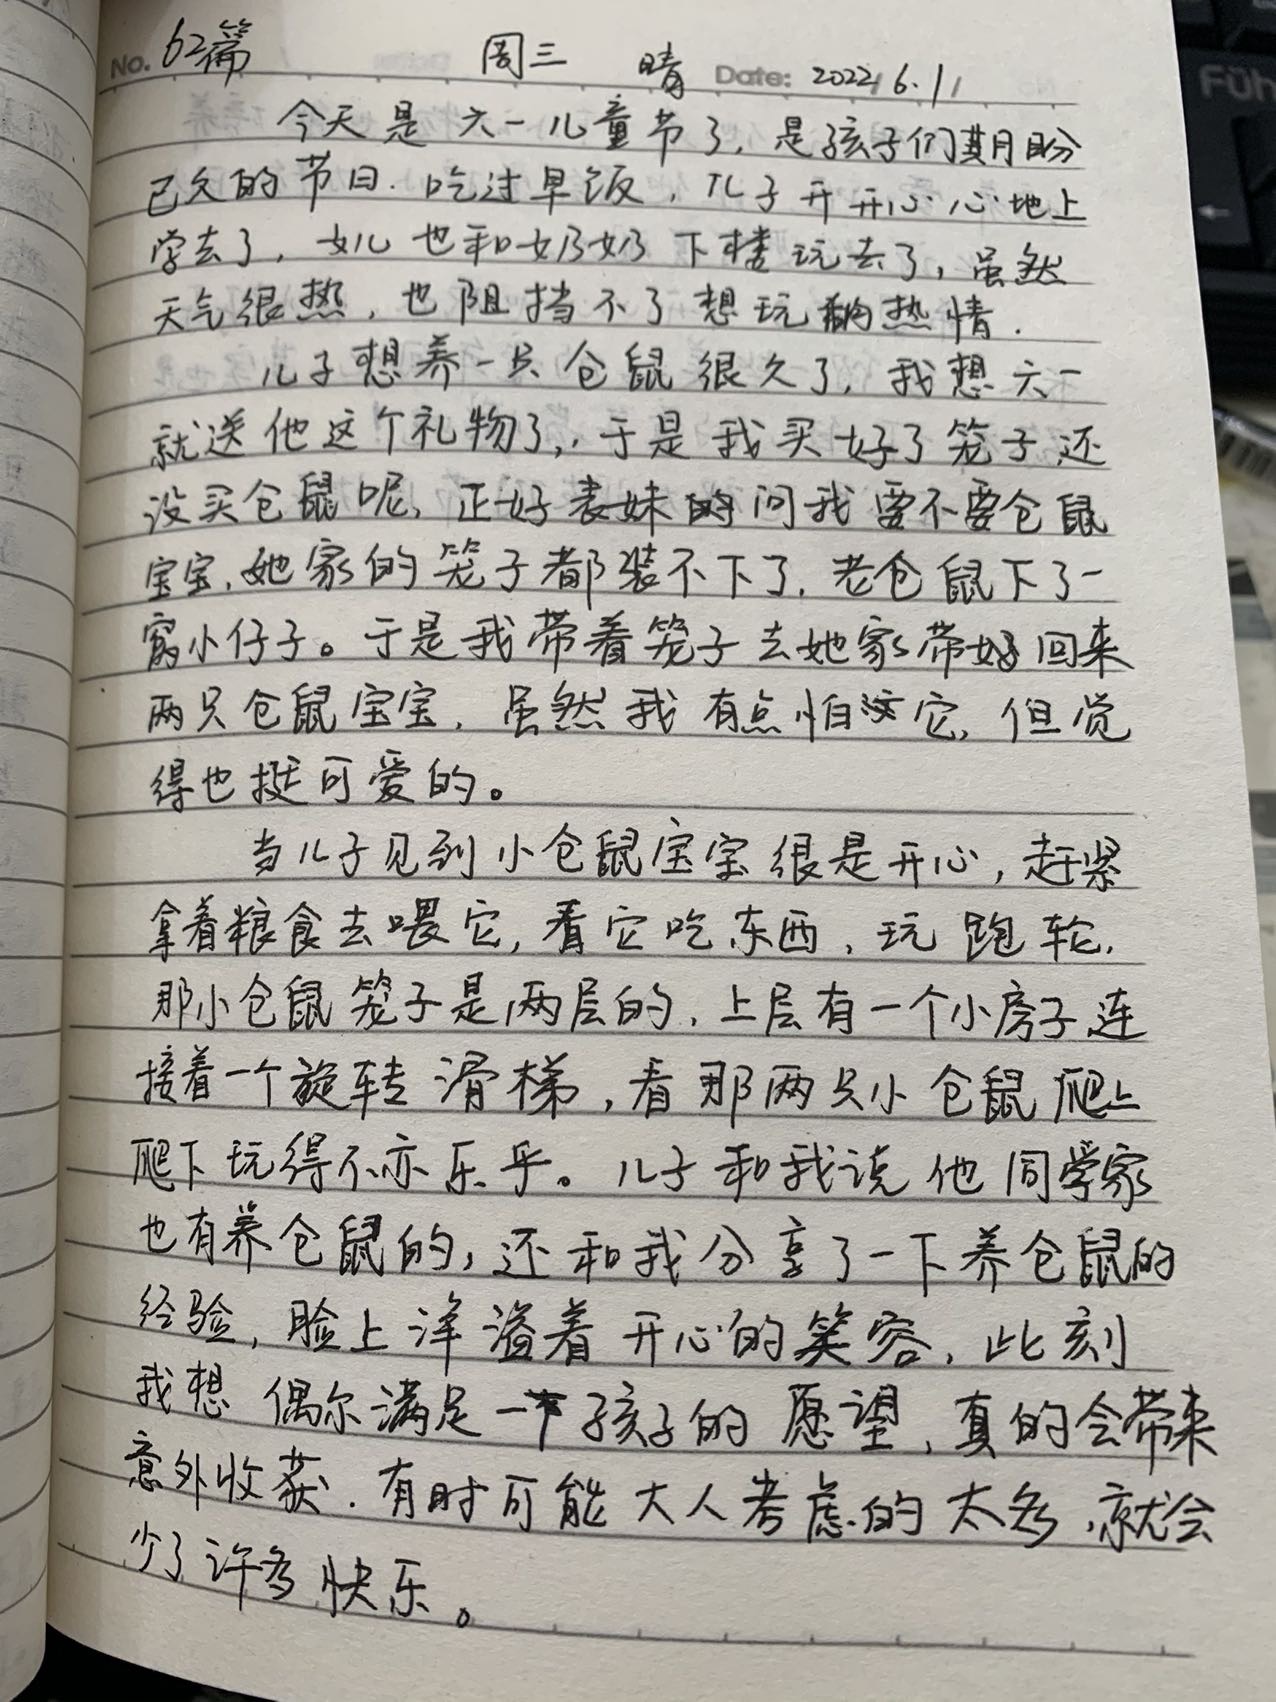 No. 62篇 周三 晴 Date: 2022 6.1
今天是六一儿童节了，是孩子们期盼
已久的节日．吃过早饭，儿子开开心心地上
学去了，女儿也和奶奶下楼玩去了，虽然
天气很热，也阻挡不了想玩的热情．
儿子想养一只仓鼠很久了，我想六一
就送他这个礼物了，于是我买好了笼子还
没买仓鼠呢，正好表妹问我要不要仓鼠
宝宝，她家的笼子都装不下了，老仓鼠下了一
窝小仔子。于是我带着笼子去她家带回来
两只仓鼠宝宝，虽然我有点怕它，但觉
得也挺可爱的。
当儿子见到小仓鼠宝宝很是开心，赶紧
拿着粮食去喂它，看它吃东西，玩跑轮，
那小仓鼠笼子是两层的，上层有一个小房子连
接着一个旋转滑梯，看那两只小仓鼠爬上
爬下玩得不亦乐乎。儿子和我说他同学家
也有养仓鼠的，还和我分享了一下养仓鼠的
经验，脸上洋溢着开心的笑容，此刻
我想偶尔满足一下孩子的愿望，真的会带来
意外收获．有时可能大人考虑的太多，就会
少了许多快乐。
Füh